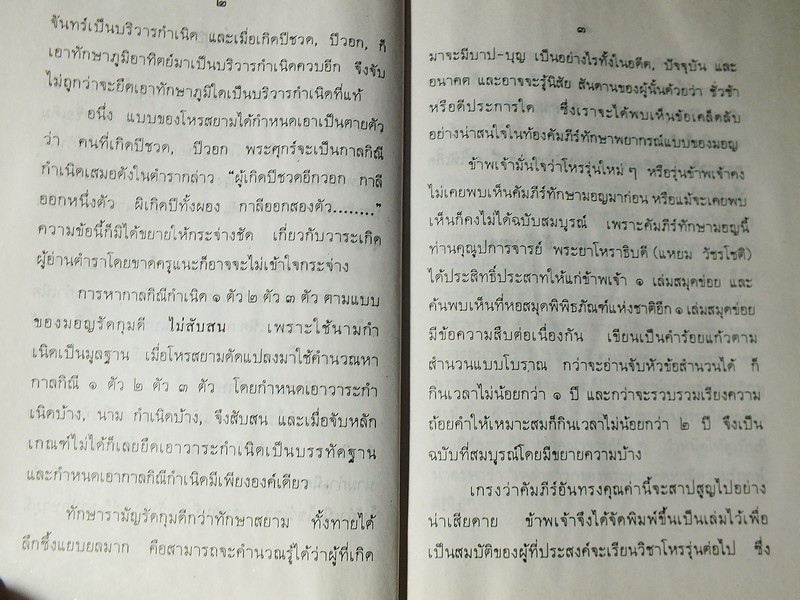 ๒
จันทร์เป็นบริวารกำเนิด และเมื่อเกิดปีชวด, ปีวอก, ก็
เอาทักษาภูมิอาทิตย์มาเป็นบริวารกำเนิดควบอีก จึงจับ
ไม่ถูกว่าจะยึดเอาทักษาภูมิใดเป็นบริวารกำเนิดที่แท้
อนึ่ง แบบของโหรสยามได้กำหนดเอาเป็นตายตัว
ว่า คนที่เกิดปีชวด, ปีวอก พระศุกร์จะเป็นกาลกิณี
กำเนิดเสมอดังในตำรากล่าว “ผู้เกิดปีชวดอีกวอก กาลี
ออกหนึ่งตัว ผิเกิดปีทั้งผอง กาลีออกสองตัว........”
ความข้อนี้ก็มิได้ขยายให้กระจ่างชัด เกี่ยวกับวาระเกิด
ผู้อ่านตำราโดยขาดครูแนะก็อาจจะไม่เข้าใจกระจ่าง
การหากาลกิณีกำเนิด ๑ ตัว ๒ ตัว ๓ ตัว ตามแบบ
ของมอญรัดกุมดี ไม่สับสน เพราะใช้นามกำ
เนิดเป็นมูลฐาน เมื่อโหรสยามดัดแปลงมาใช้คำนวณหา
กาลกิณี ๑ ตัว ๒ ตัว ๓ ตัว โดยกำหนดเอาวาระกำ
เนิดบ้าง, นาม กำเนิดบ้าง, จึงสับสน และเมื่อจับหลัก
เกณฑ์ไม่ได้ก็เลยยึดเอาวาระกำเนิดเป็นบรรทัดฐาน
และกำหนดเอากาลกิณีกำเนิดมีเพียงองค์เดียว
ทักษารามัญรัดกุมดีกว่าทักษาสยาม ทั้งทายได้
ลึกซึ้งแยบยลมาก คือสามารถจะคำนวณรู้ได้ว่าผู้ที่เกิด
๓
มาจะมีบาป-บุญ เป็นอย่างไรทั้งในอดีต, ปัจจุบัน และ
อนาคต และอาจจะรู้นิสัย สันดานของผู้นั้นด้วยว่า ชั่วช้า
หรือดีประการใด ซึ่งเราจะได้พบเห็นข้อเคล็ดลับ
อย่างน่าสนใจในท้องคัมภีร์ทักษาพยากรณ์แบบของมอญ
ข้าพเจ้ามั่นใจว่าโหรรุ่นใหม่ ๆ หรือรุ่นข้าพเจ้าคง
ไม่เคยพบเห็นคัมภีร์ทักษามอญมาก่อน หรือแม้จะเคยพบ
เห็นก็คงไม่ได้ฉบับสมบูรณ์ เพราะคัมภีร์ทักษามอญนี้
ท่านคุณุปการจารย์ พระยาโหราธิบดี (แหยม วัชรโชติ)
ได้ประสิทธิ์ประสาทให้แก่ข้าพเจ้า ๑ เล่มสมุดข่อย และ
ค้นพบเห็นที่หอสมุดพิพิธภัณฑ์แห่งชาติอีก ๑ เล่มสมุดข่อย
มีข้อความสืบต่อเนื่องกัน เขียนเป็นคำร้อยแก้วตาม
สำนวนแบบโบราณ กว่าจะอ่านจับหัวข้อสำนวนได้ ก็
กินเวลาไม่น้อยกว่า ๑ ปี และกว่าจะรวบรวมเรียงความ
ถ้อยคำให้เหมาะสมก็กินเวลาไม่น้อยกว่า ๒ ปี จึงเป็น
ฉบับที่สมบูรณ์โดยมีขยายความบ้าง
เกรงว่าคัมภีร์อันทรงคุณค่านี้จะสาปสูญไปอย่าง
น่าเสียดาย ข้าพเจ้าจึงได้จัดพิมพ์ขึ้นเป็นเล่มไว้เพื่อ
เป็นสมบัติของผู้ที่ประสงค์จะเรียนวิชาโหรรุ่นต่อไป ซึ่ง